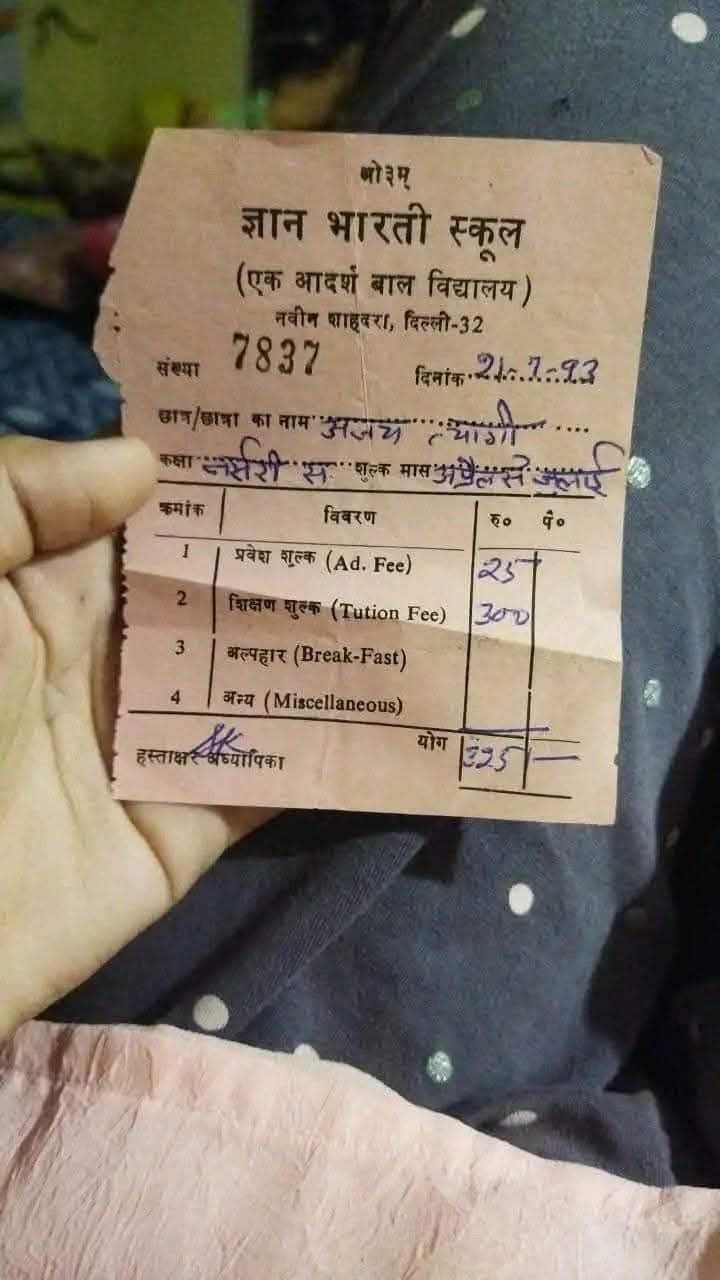 ओ३म्
ज्ञान भारती स्कूल
(एक आदर्श बाल विद्यालय)
नवीन शाहदरा, दिल्ली-32
संख्या 7837 दिनांक 21-7-93
छात्र/छात्रा का नाम अजय त्यागी
कक्षा नर्सरी स शुल्क मास अप्रैल से जुलाई
क्रमांक विवरण रु० पै०
1 प्रवेश शुल्क (Ad. Fee) 25
2 शिक्षण शुल्क (Tution Fee) 300
3 अल्पहार (Break-Fast)
4 अन्य (Miscellaneous)
योग 325 —
हस्ताक्षर अध्यापिका